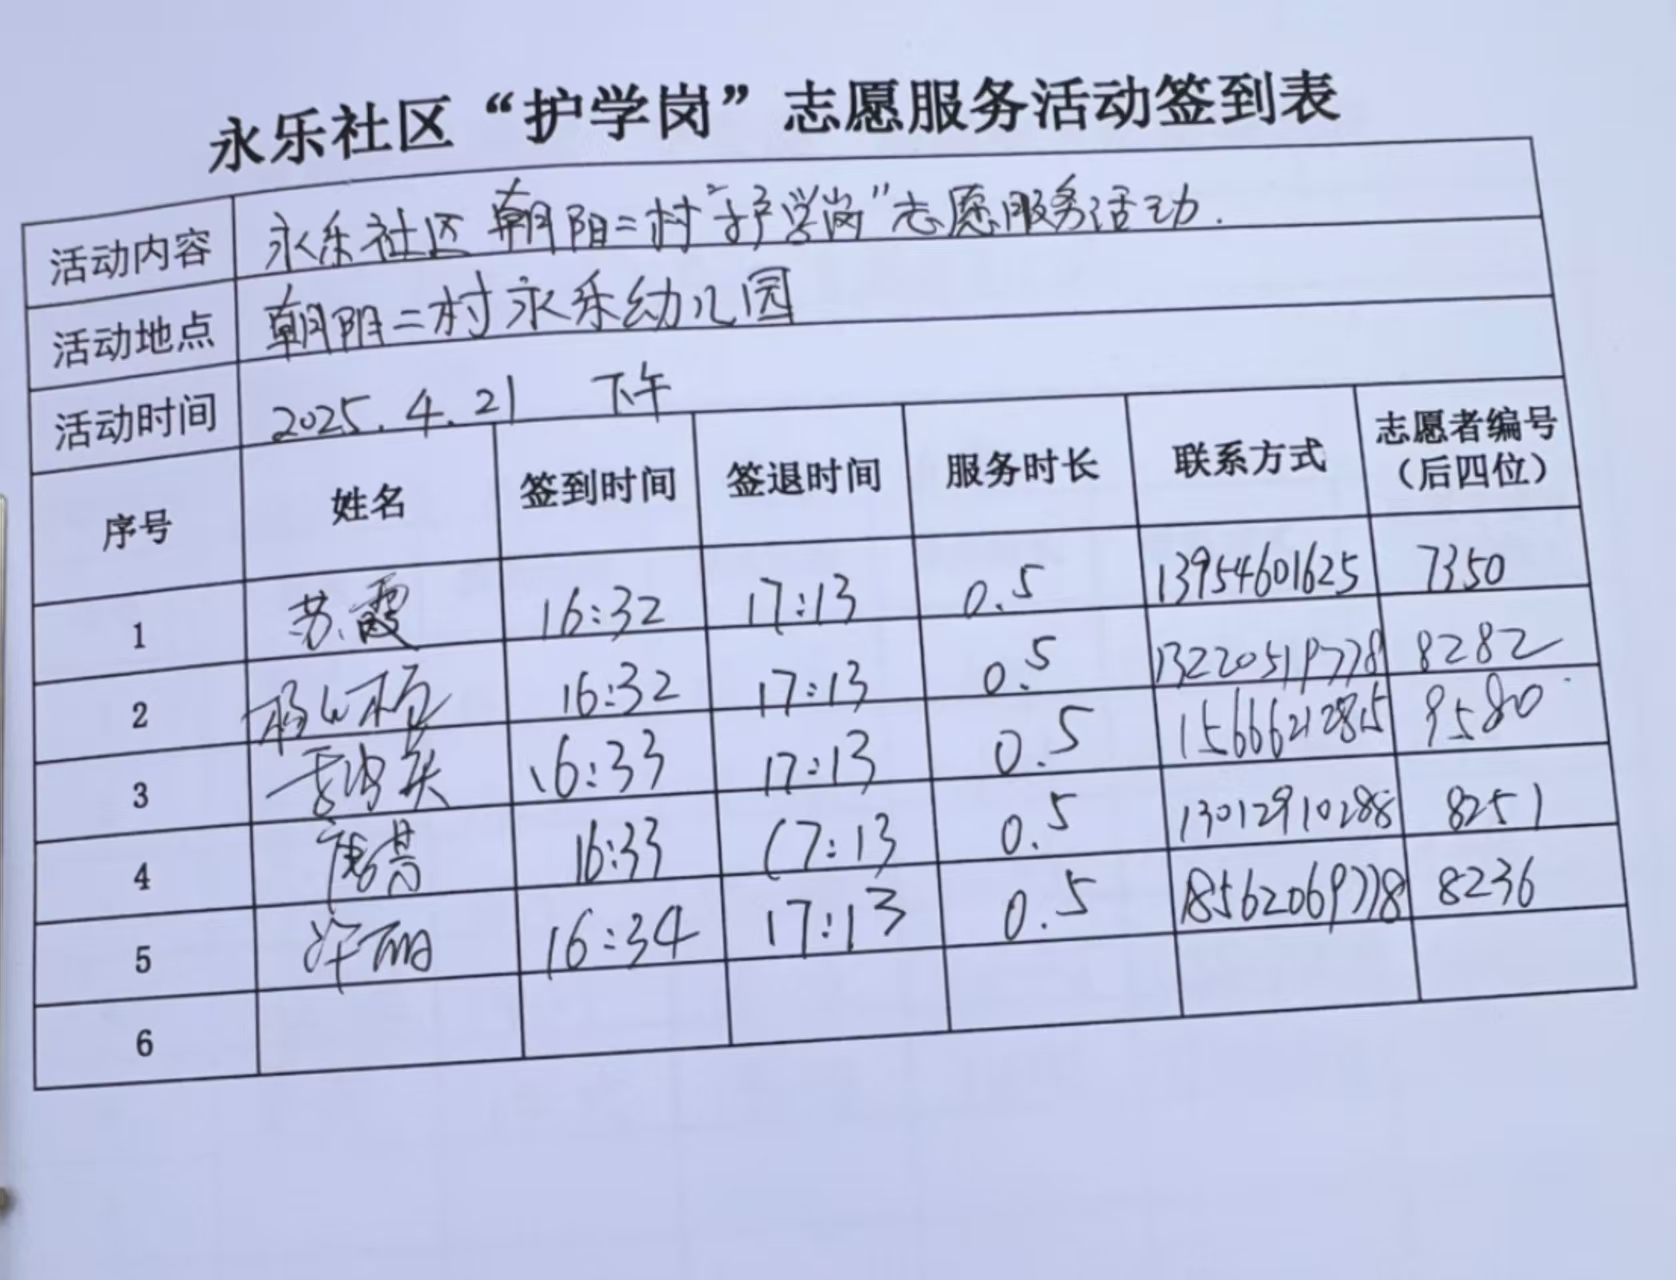 永乐社区“护学岗”志愿服务活动签到表
活动内容 永乐社区朝阳二村“护学岗”志愿服务活动.
活动地点 朝阳二村永乐幼儿园
活动时间 2025.4.21 下午
序号 姓名 签到时间 签退时间 服务时长 联系方式 志愿者编号（后四位）
1 苏霞 16:32 17:13 0.5 13954601625 7350
2 16:32 17:13 0.5 13220519778 8282
3 16:33 17:13 0.5 15666212815 9580
4 16:33 17:13 0.5 13012910288 8251
5 许丽 16:34 17:13 0.5 18562069778 8236
6